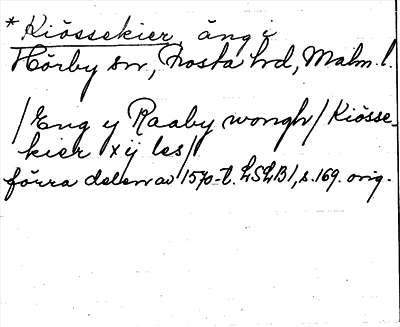 *Kiössekier, äng i
Hörby sn, Frosta hd, Malm. l.
/Eng y Raaby wongh/ Kiösse-
kier xij les//
förra delen av 1570-t. LSLB1, s. 169. orig.